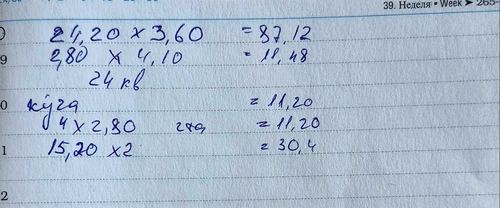 39. Неделя • Week ➤ 265-
24,20 x 3,60 = 87,12
9 2,80 x 4,10 = 11,48
24 кв
0 куга = 11,20
4 x 2,80 = 11,20
1 15,20 x2 = 30,4
2